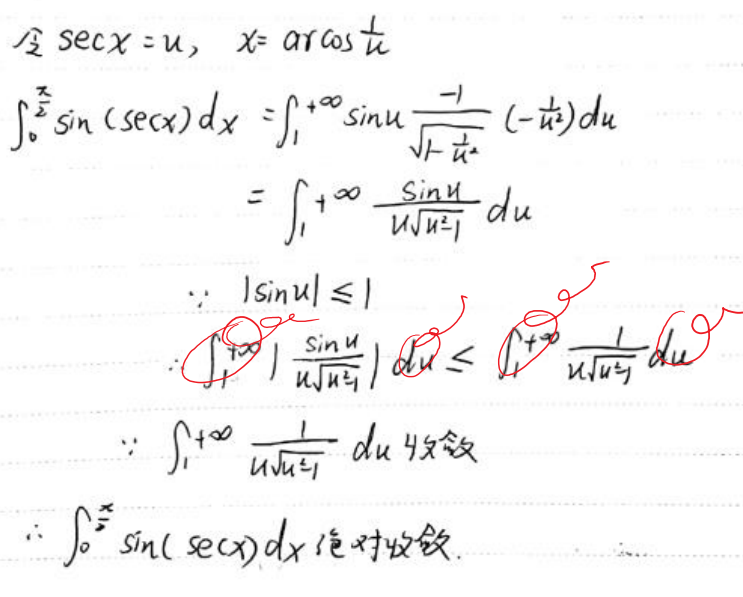 令 secx = u, x = arcos 1/u
∫₀^{π/2} sin(secx)dx = ∫₁^{+∞} sinu · -1/√(1-1/u²) (-1/u²)du
= ∫₁^{+∞} sinu/(u√(u²-1)) du
∵ |sinu| ≤ 1
∴ ∫₁^{+∞} |sinu/(u√(u²-1))| du ≤ ∫₁^{+∞} 1/(u√(u²-1)) du
∵ ∫₁^{+∞} 1/(u√(u²-1)) du 收敛
∴ ∫₀^{π/2} sin(secx)dx 绝对收敛.